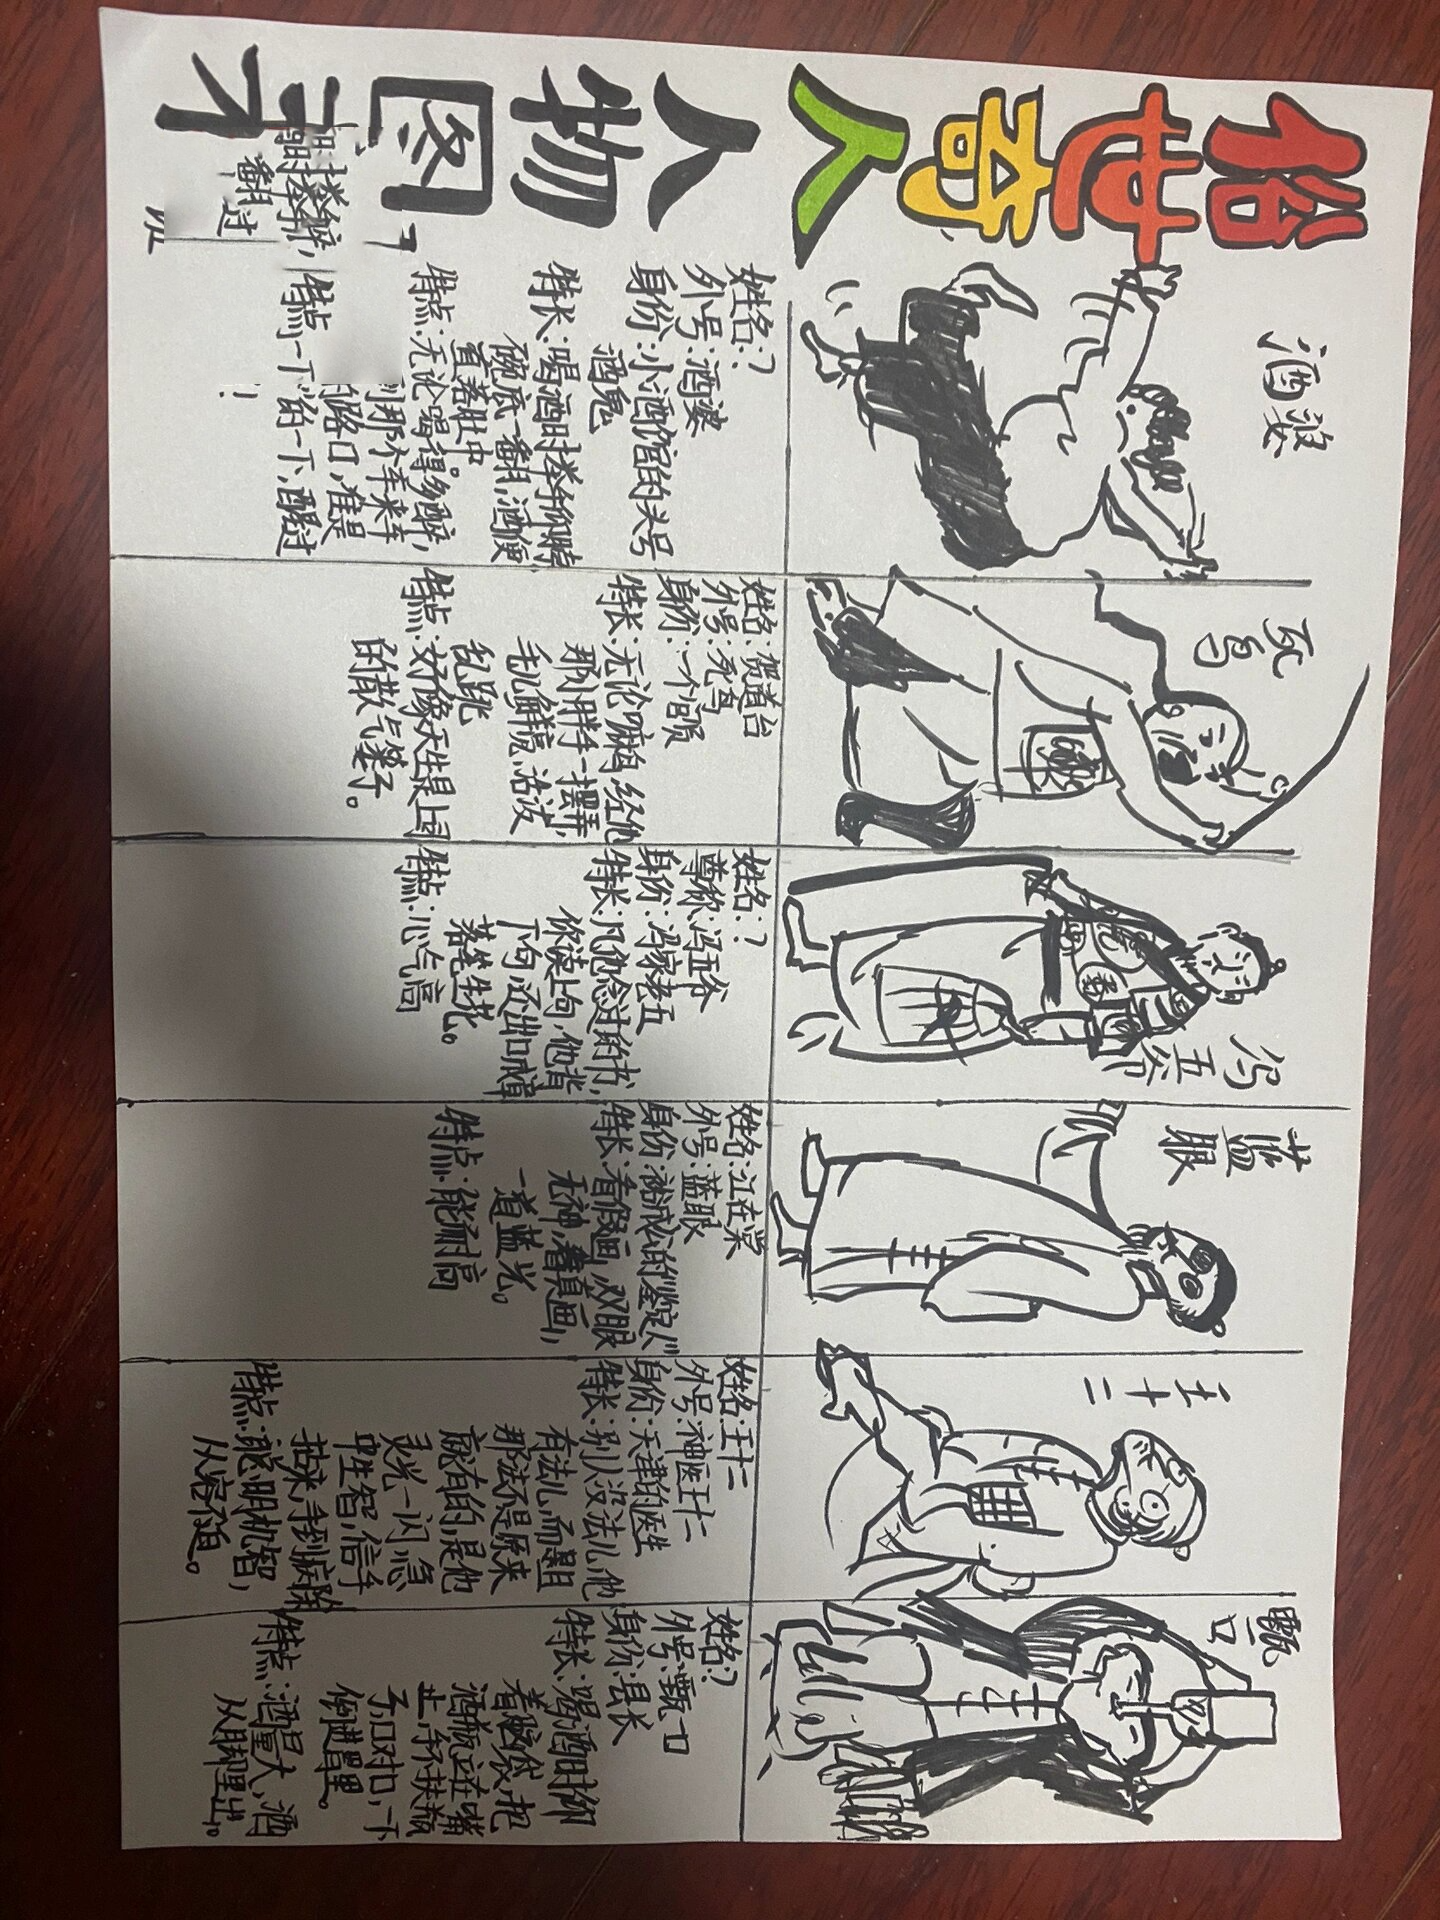 俗世奇人
人物图
酒婆
姓名:?
外号:酒婆
身份:小酒馆的头号
酒鬼
特长:喝酒时举手仰脖
碗底一翻,酒便
直落肚中。
特点:无论喝得多醉,
到那个车来车
的路口,准是
一下的一下,醒过
!
死鸟
姓名:贺道台
外号:死鸟
身份:一个官员
特长:无论嘛鸟,经他
那胖手一摆弄,
毛儿鲜亮,活泼
乱跳
特点:好像天生是上司
的散气篓子。
冯五爷
姓名:?
尊称:冯五爷
身份:冯家老五
特长:凡他念过的书,
你读上句,他背
下句,还出口成章
落笔生花。
特点:心气高
蓝眼
姓名:江在棠
外号:蓝眼
身份:裕成公的鉴定人
特长:看假画,双眼
无神,看真画,
一道蓝光。
特点:能耐高
王十二
姓名:王十二
外号:神医王十二
身份:天津的医生
特长:别人没法儿,他
有法儿,而且
那法不是原来
就有的,是他
灵光一闪,急
中生智,信手
拈来,手到病除
特点:聪明机智,
从容不迫。
甄一口
姓名:?
外号:甄一口
身份:县长
特长:喝酒时仰
着脑袋,把
酒瓶立在嘴
上,手不扶瓶
子,口对口,一下
倒进胃里。
特点:酒量大,酒
从脚里出。